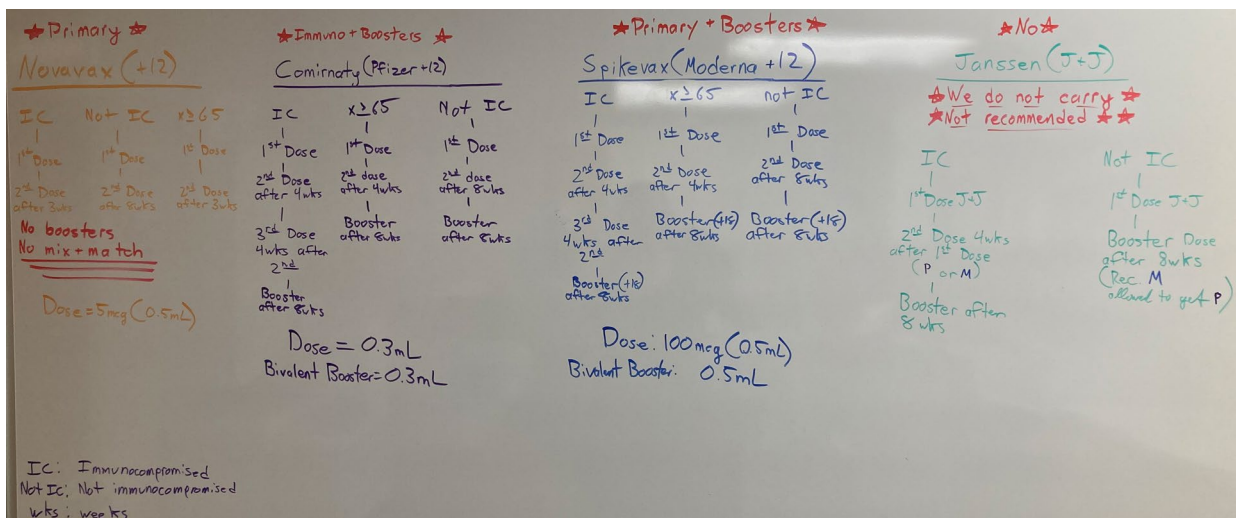 ★Primary★
Novavax (+12)
IC
1st Dose
2nd Dose
after 3wks
Not IC
1st Dose
2nd Dose
after 8wks
x≥65
1st Dose
2nd Dose
after 3wks
No boosters
No mix + match
Dose=5mcg (0.5mL)
★Immuno+Boosters★
Comirnaty (Pfizer +12)
IC
1st Dose
2nd Dose
after 4wks
3rd Dose
4wks after
2nd
Booster
after 8wks
x≥65
1st Dose
2nd dose
after 4wks
Booster
after 8wks
Not IC
1st Dose
2nd dose
after 8wks
Booster
after 8wks
Dose = 0.3mL
Bivalent Booster=0.3mL
★Primary + Boosters★
Spikevax (Moderna +12)
IC
1st Dose
2nd Dose
after 4wks
3rd Dose
4wks after
2nd
Booster (+18)
after 8wks
x≥65
1st Dose
2nd Dose
after 4wks
Booster (+18)
after 8wks
not IC
1st Dose
2nd Dose
after 8wks
Booster (+18)
after 8wks
Dose: 100mcg (0.5mL)
Bivalent Booster: 0.5mL
★No★
Janssen (J+J)
★We do not carry★
★Not recommended★★
IC
1st Dose J+J
2nd Dose 4wks
after 1st Dose
(P or M)
Booster after
8 wks
Not IC
1st Dose J+J
Booster Dose
after 8wks
(Rec. M
allowed to get P)
IC: Immunocompromised
Not Ic: Not immunocompromised
wks: weeks